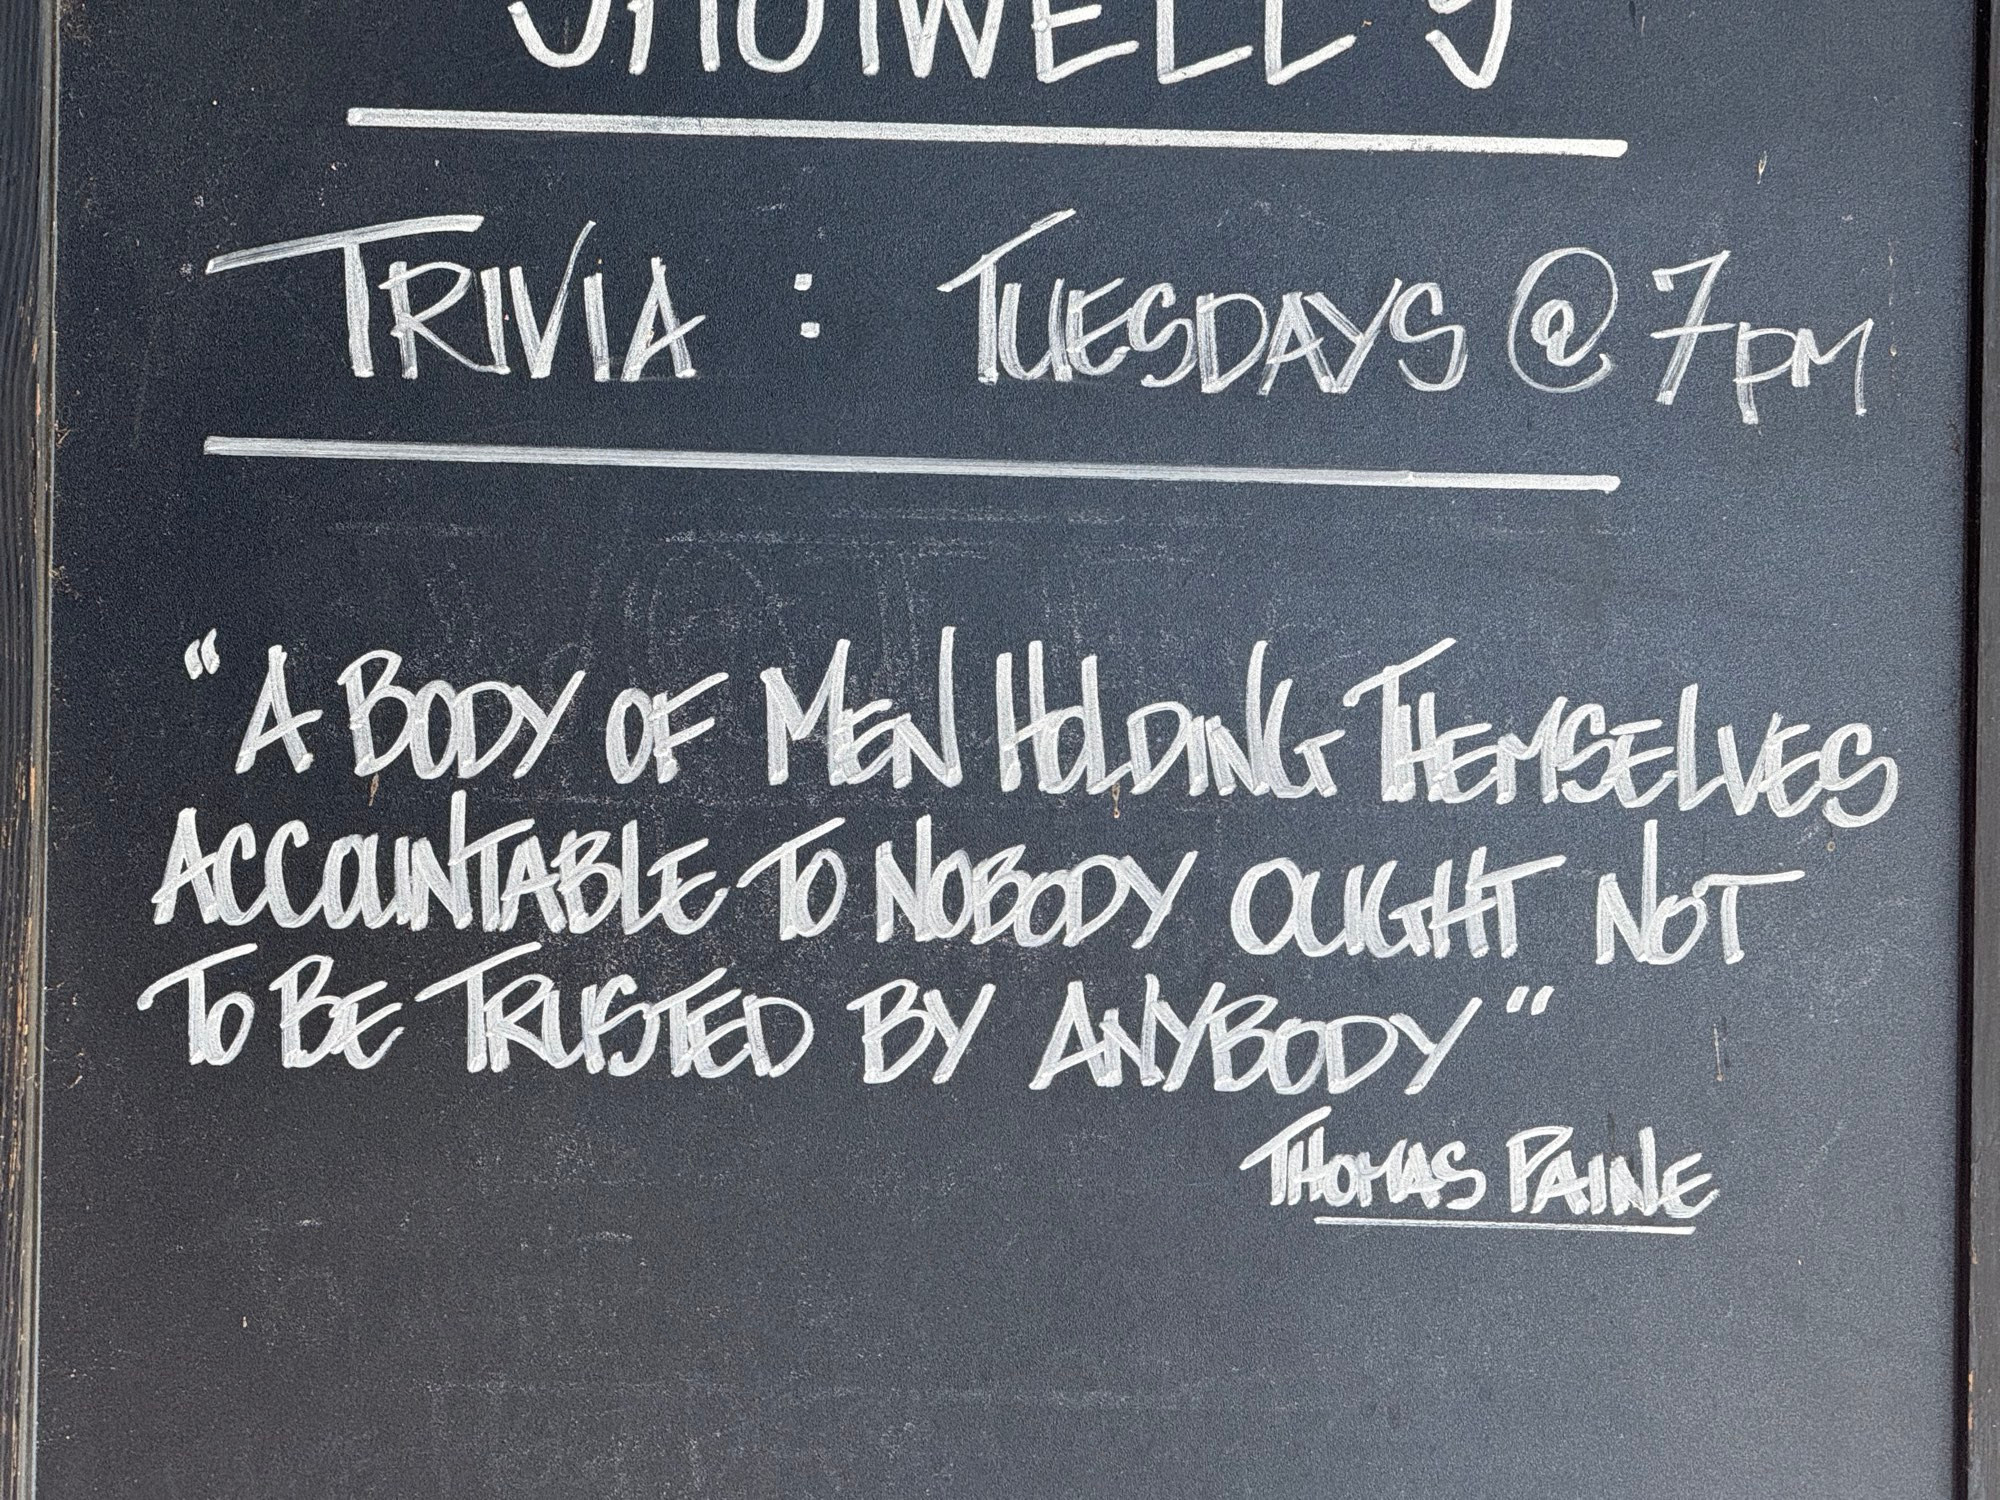 TRIVIA : TUESDAYS @ 7PM
"A BODY OF MEN HOLDING THEMSELVES
ACCOUNTABLE TO NOBODY OUGHT NOT
TO BE TRUSTED BY ANYBODY"
THOMAS PAINE